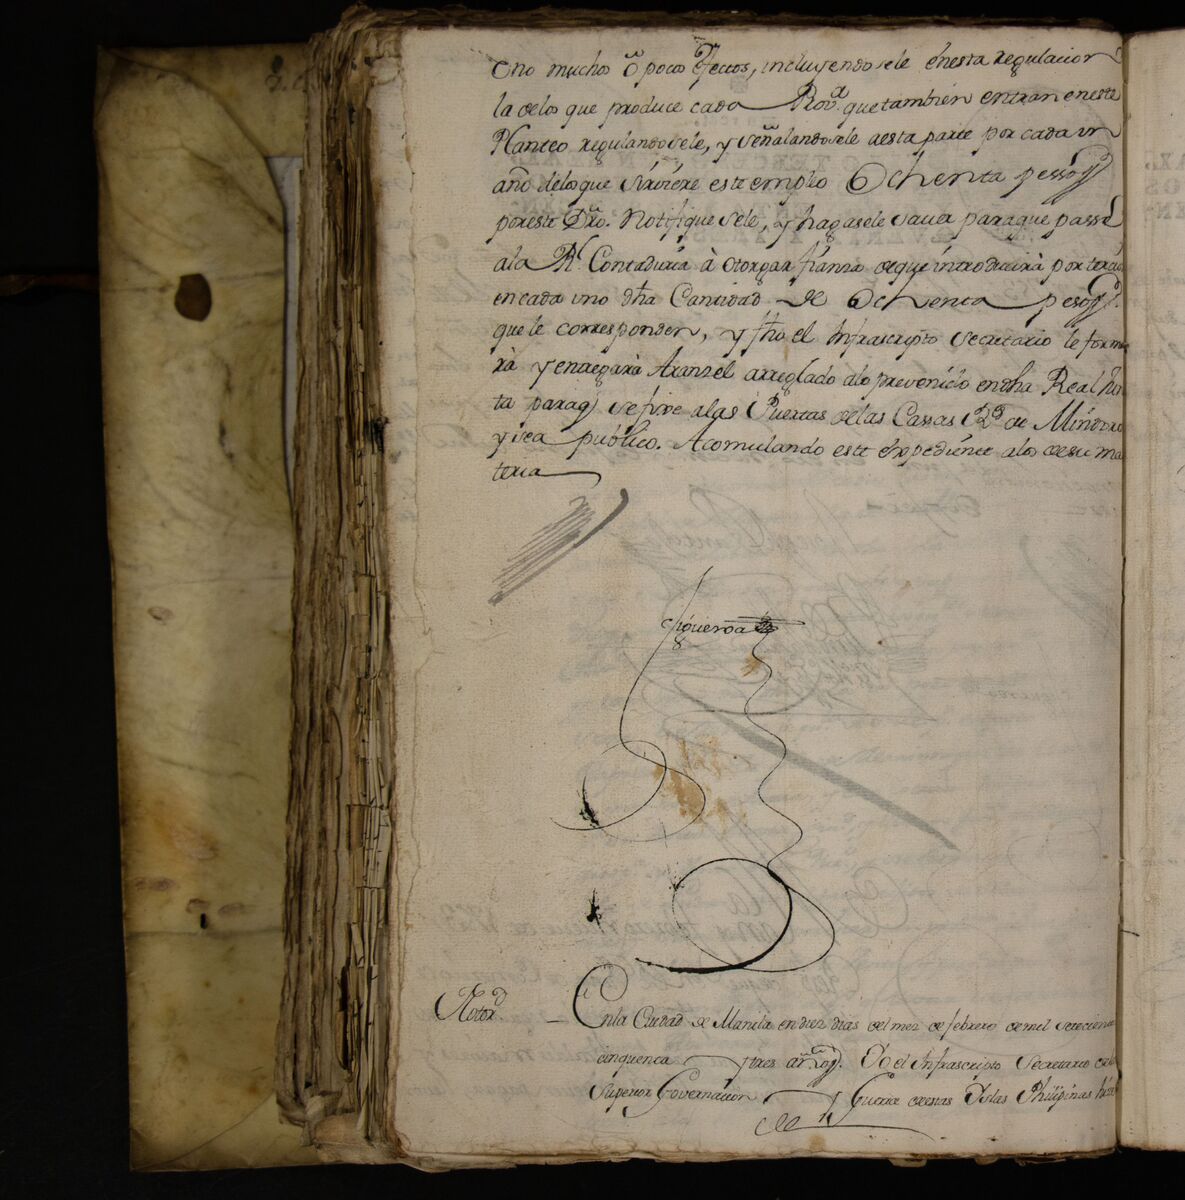 o no mucho o poco efectos, incluyendosele en esta regulacion
la de lo que produce cada Rov.ª que tambien entran en este
Planteo regulandosele, y señalandosele a esta parte por cada un
año de los que sirviere este empleo Ochenta pessos
por este Dro. Notifiquesele, y hagasele saver para que passe
a la Rl. Contaduria à otorgar fianza de que introducirà por tercio
en cada uno dha Cantidad de Ochenta pesos
que le corresponden, y fho el Infrascripto Secretario le forma
rà y entregarà Aranzel arreglado a lo prevenido en dha Real
ta paraq se fixe a las Puertas de las Cassas Rs. de Mindoro
y sea publico. Acomulando este expediente a los de su ma
teria
Figueroa
Notor.d
En la Ciudad de Manila en diez dias del mes de febrero de mil setecien.
cinquenta y tres años. Yo el Infrascripto Secretario de la
Superior Governacion y Guerra de estas Yslas Philipinas